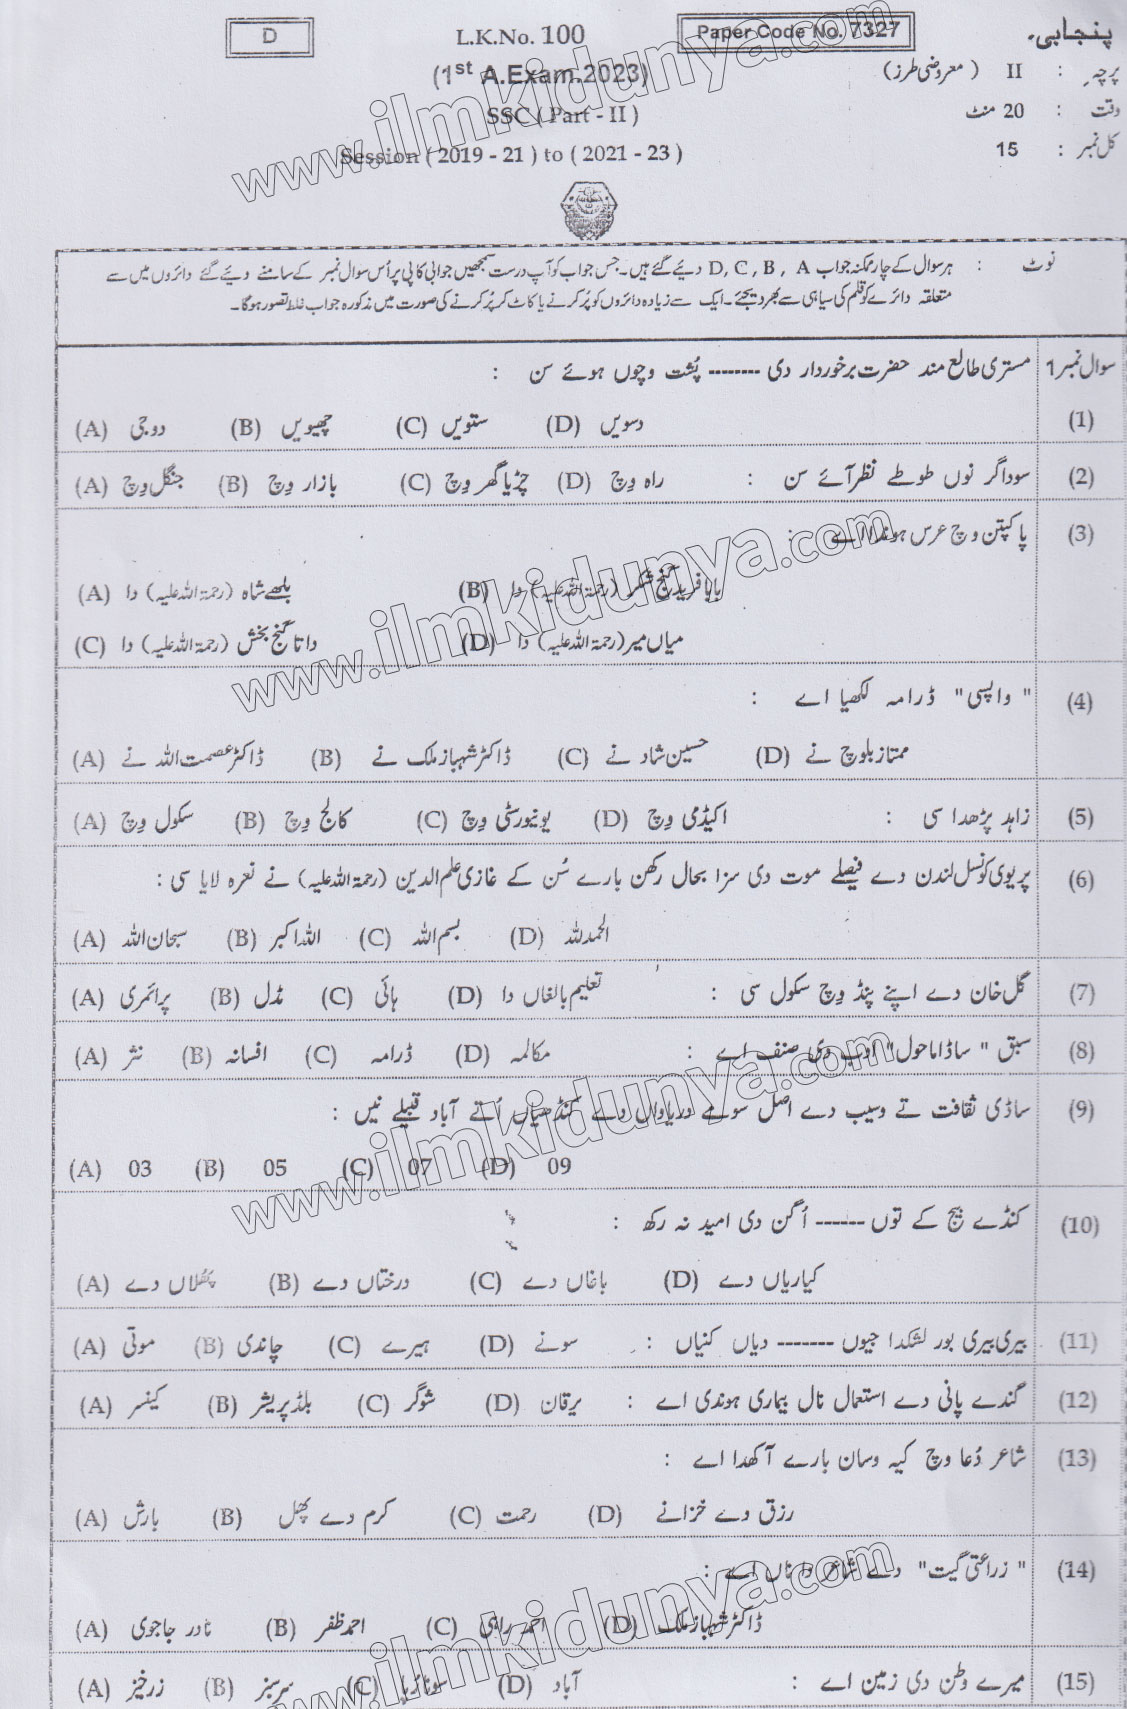 پنجابی۔ Paper Code No. 7327 L.K.No. 100 D
پرچہ : II (معروضی طرز) (1st A.Exam.2023)
وقت : 20 منٹ SSC ( Part - II )
کل نمبر : 15 Session ( 2019 - 21 ) to ( 2021 - 23 )
نوٹ : ہر سوال کے چار ممکنہ جواب D, C, B, A دیئے گئے ہیں۔ جس جواب کو آپ درست سمجھیں جوابی کاپی پر اُس سوال نمبر کے سامنے دیئے گئے دائروں میں سے
متعلقہ دائرے کو قلم کی سیاہی سے بھر دیجئے۔ ایک سے زیادہ دائروں کو پُر کرنے یا کاٹ کر پُر کرنے کی صورت میں مذکورہ جواب غلط تصور ہوگا۔
سوال نمبر 1 مستری طالع مند حضرت برخوردار دی -------- پُشت وچوں ہوئے سن :
(1) (A) دوجی (B) چھیویں (C) ستویں (D) دسویں
(2) سوداگر نوں طوطے نظر آئے سن : (A) جنگل وِچ (B) بازار وِچ (C) چڑیا گھر وِچ (D) راہ وِچ
(3) پاکپتن وچ عرس ہوندا اے :
(A) بلھے شاہ (رحمۃ اللہ علیہ) دا (B) بابا فرید گنج شکر (رحمۃ اللہ علیہ) دا
(C) داتا گنج بخش (رحمۃ اللہ علیہ) دا (D) میاں میر (رحمۃ اللہ علیہ) دا
(4) " واپسی " ڈرامہ لکھیا اے :
(A) ڈاکٹر عصمت اللہ نے (B) ڈاکٹر شہباز ملک نے (C) حسین شاد نے (D) ممتاز بلوچ نے
(5) زاہد پڑھدا سی : (A) سکول وِچ (B) کالج وِچ (C) یونیورسٹی وِچ (D) اکیڈمی وِچ
(6) پریوی کونسل لندن دے فیصلے موت دی سزا بحال رکھن بارے سُن کے غازی علم الدین (رحمۃ اللہ علیہ) نے نعرہ لایا سی :
(A) سبحان اللہ (B) اللہ اکبر (C) بسم اللہ (D) الحمدللہ
(7) گل خان دے اپنے پنڈ وِچ سکول سی : (A) پرائمری (B) مڈل (C) ہائی (D) تعلیم بالغاں دا
(8) سبق " ساڈا ماحول" ادب دی صنف اے : (A) نثر (B) افسانہ (C) ڈرامہ (D) مکالمہ
(9) ساڈی ثقافت تے وسیب دے اصل سومے دریاواں دے کنڈھیاں اُتے آباد قبیلے نیں :
(A) 03 (B) 05 (C) 07 (D) 09
(10) کنڈے بیج کے توں ------ اُگن دی امید نہ رکھ :
(A) پھلاں دے (B) درختاں دے (C) باغاں دے (D) کیاریاں دے
(11) بیری بیری بور لشکدا جیوں ------- دیاں کنیاں : (A) موتی (B) چاندی (C) ہیرے (D) سونے
(12) گندے پانی دے استعمال نال بیماری ہوندی اے : (A) کینسر (B) بلڈ پریشر (C) شوگر (D) یرقان
(13) شاعر دُعا وچ کیہ وسان بارے آکھدا اے :
(A) بارش (B) کرم دے پھل (C) رحمت (D) رزق دے خزانے
(14) " زراعتی گیت" دے شاعر دا ناں اے :
(A) نادر جاجوی (B) احمد ظفر (C) احمد راہی (D) ڈاکٹر شہباز ملک
(15) میرے وطن دی زمین اے : (A) زرخیز (B) سرسبز (C) سونا رُپا (D) آباد
www.ilmkidunya.com
www.ilmkidunya.com
www.ilmkidunya.com
www.ilmkidunya.com